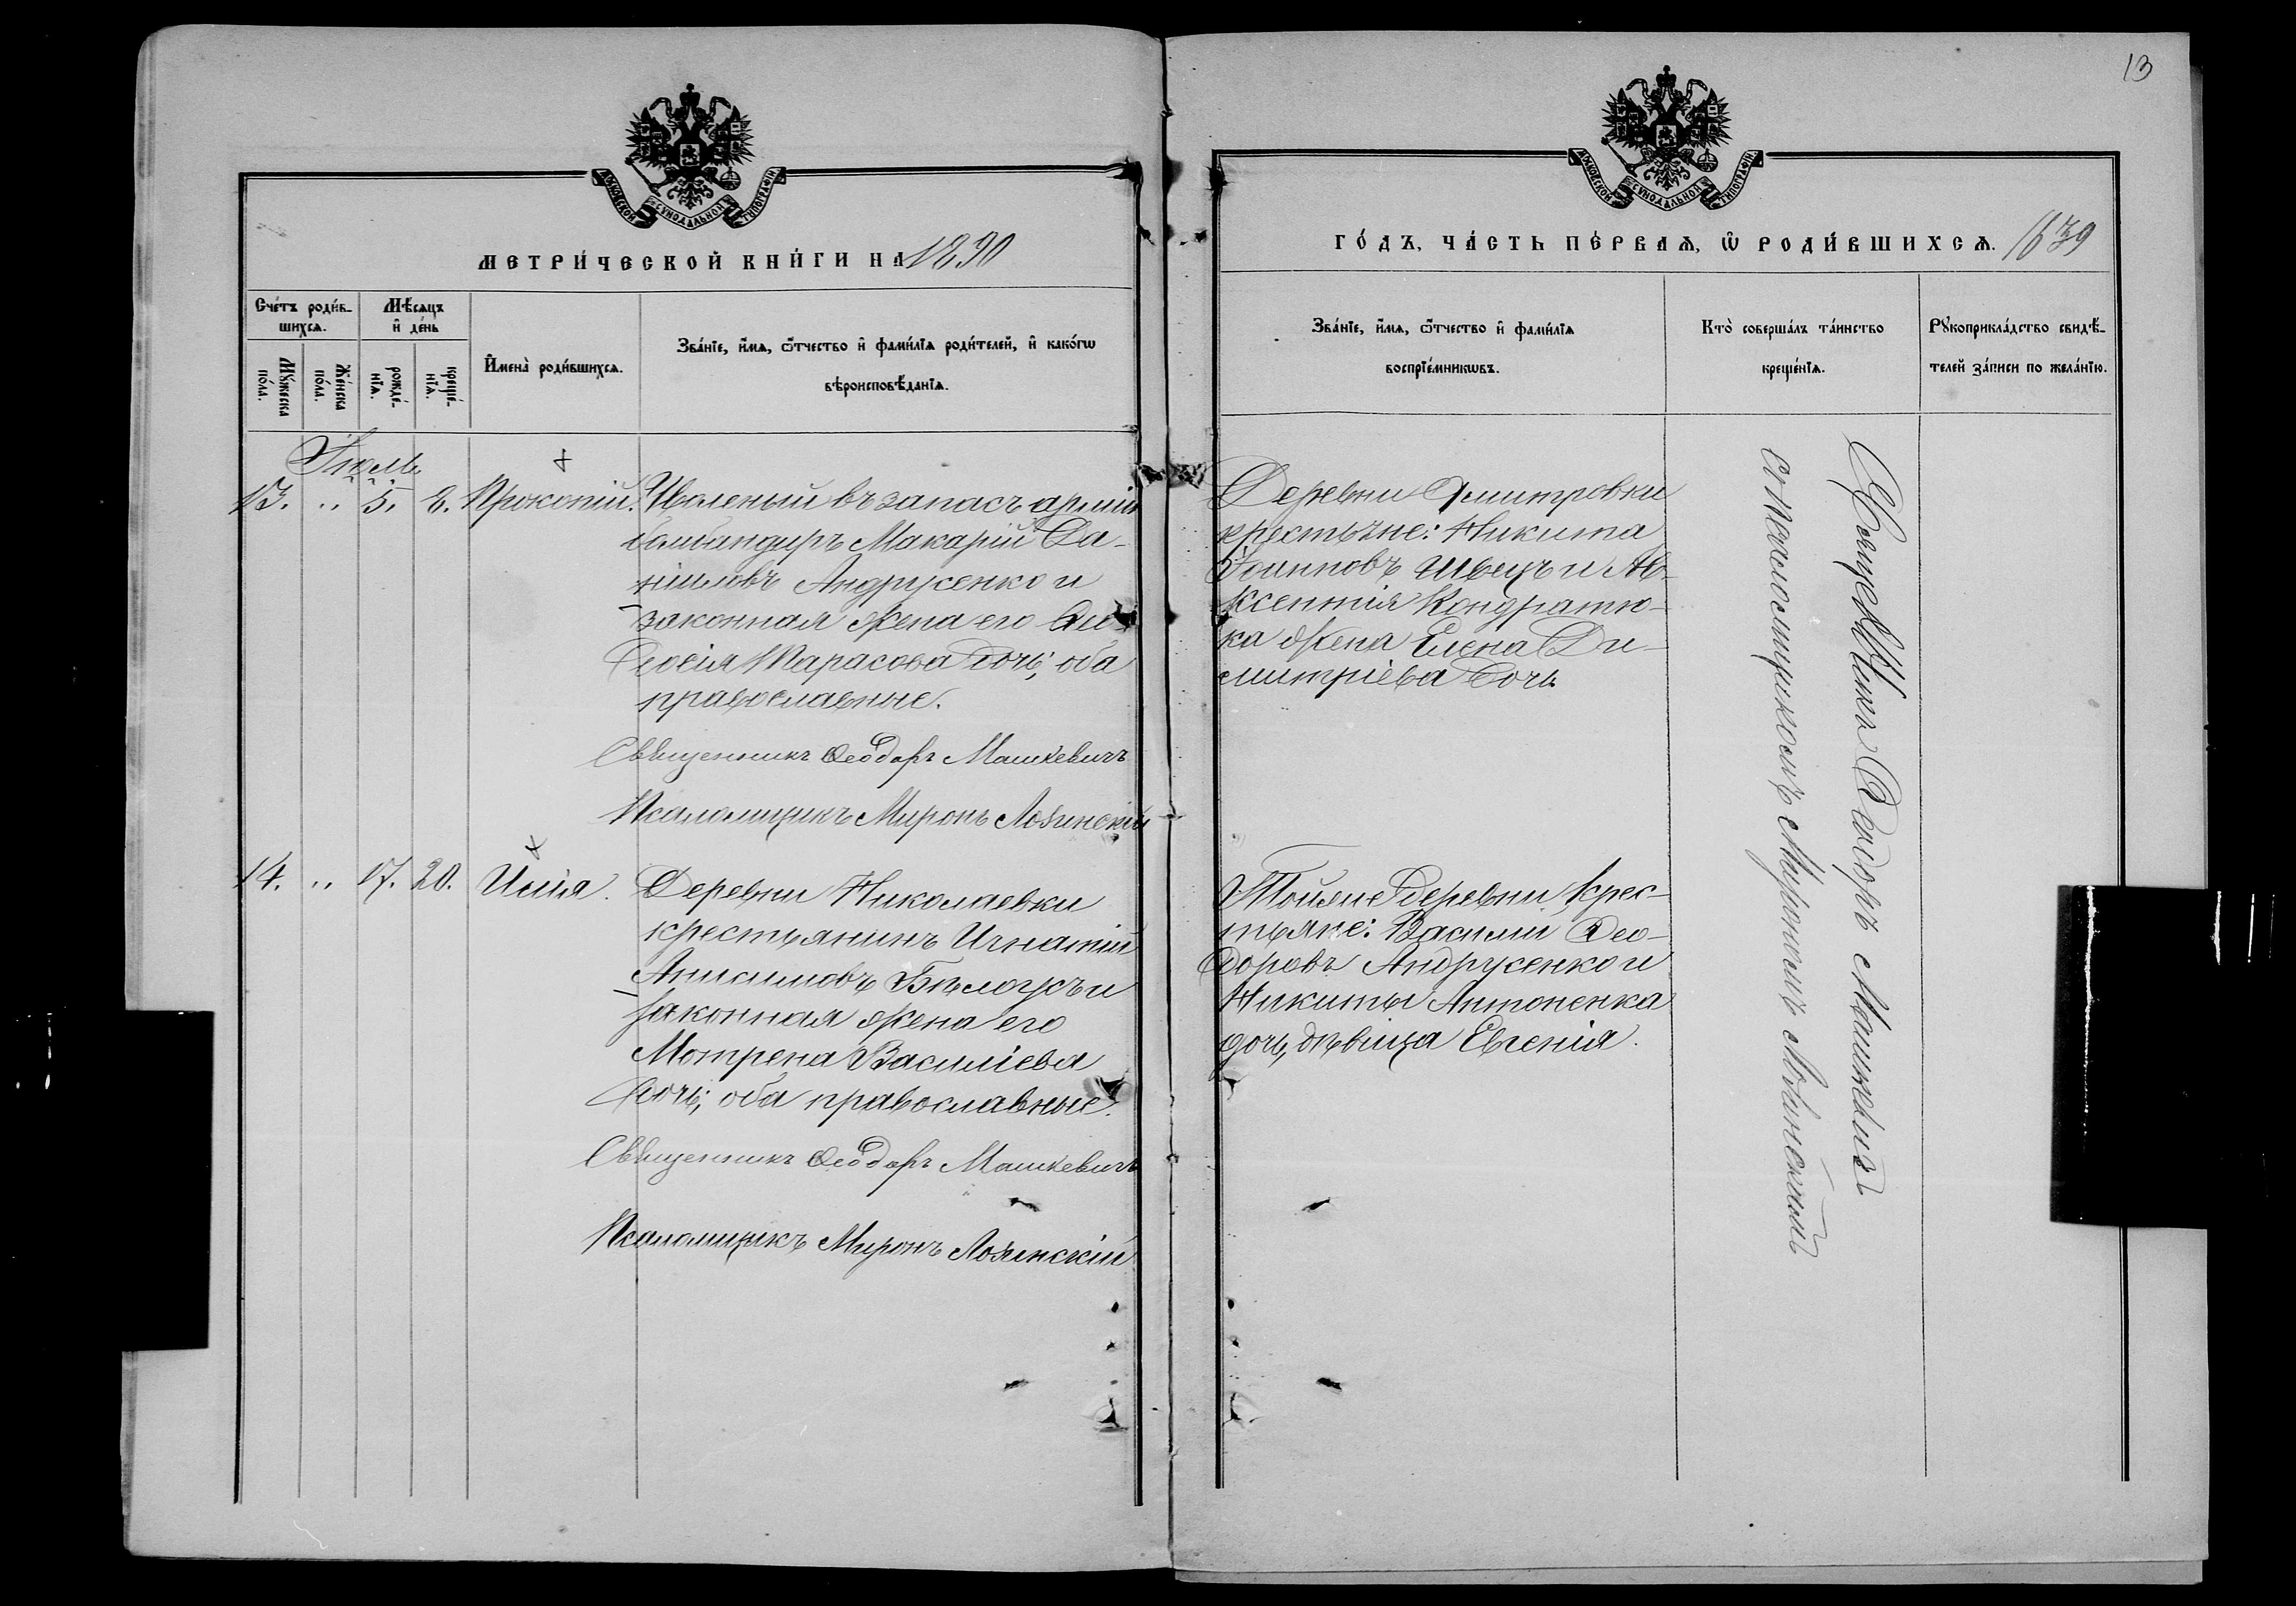 13
МОСКОВСКОЙ СѴНОДАЛЬНОЙ ТИПОГРАФІИ
МЕТРИ́ЧЕСКОЙ КНИ́ГИ НА 1890
Сче́тъ роди́в-
шихсѧ.
Мꙋ́жеска
по́ла.
Же́нска
по́ла.
Мѣ́сѧцъ
и҆ де́нь
рожде́-
нїѧ.
креще́-
нїѧ.
И҆мена̀ роди́вшихсѧ.
Зва́нїе, и҆́мѧ, ѻ҆́тчество и҆ фами́лїѧ роди́телей, и҆ како́гѡ
вѣроисповѣ́данїѧ.
Іюль
13. " 5. 8. Прокопій. Уволеный въ запасъ арміи
бомбандиръ Макарій Да-
ніиловъ Андрусенко и
законная жена его
Тарасова дочь; оба
православные.
Священникъ Ѳеодоръ Машкевичъ
Псаломщикъ Миронъ Лозинскій
14. " 17. 20. Илія. Деревни Николаевки
крестьянинъ Игнатій
Анисимовъ Бѣлоусъ и
законная жена его
Мотрена Василіева
дочь; оба православные.
Священникъ Ѳеодоръ Машкевичъ
Псаломщикъ Миронъ Лозинскій
МОСКОВСКОЙ СѴНОДАЛЬНОЙ ТИПОГРАФІИ
ГО́ДЪ, ЧА́СТЬ ПЕ́РВАѦ, Ѡ҆ РОДИ́ВШИХСѦ. 1639
Зва́нїе, и҆́мѧ, ѻ҆́тчество и҆ фами́лїѧ
воспрїе́мникѡвъ.
Кто̀ соверша́лъ та́инство
креще́нїѧ.
Рꙋкоприкла́дство свидѣ́-
телей за́писи по жела́нїю.
Деревни Дмитровки
крестьяне: Никита
Іоанновъ Швецъ и Ав-
ксентія Кондратю-
ка жена Елена Ди-
митріева дочь
Тойже деревни крес-
тьяне: Василій Ѳео-
доровъ Андрусенко и
Никиты Антоненка
дочь, дѣвица Евгенія.
Священникъ Ѳеодоръ Машкевичъ
со псаломщикомъ Мирономъ Лозинскимъ